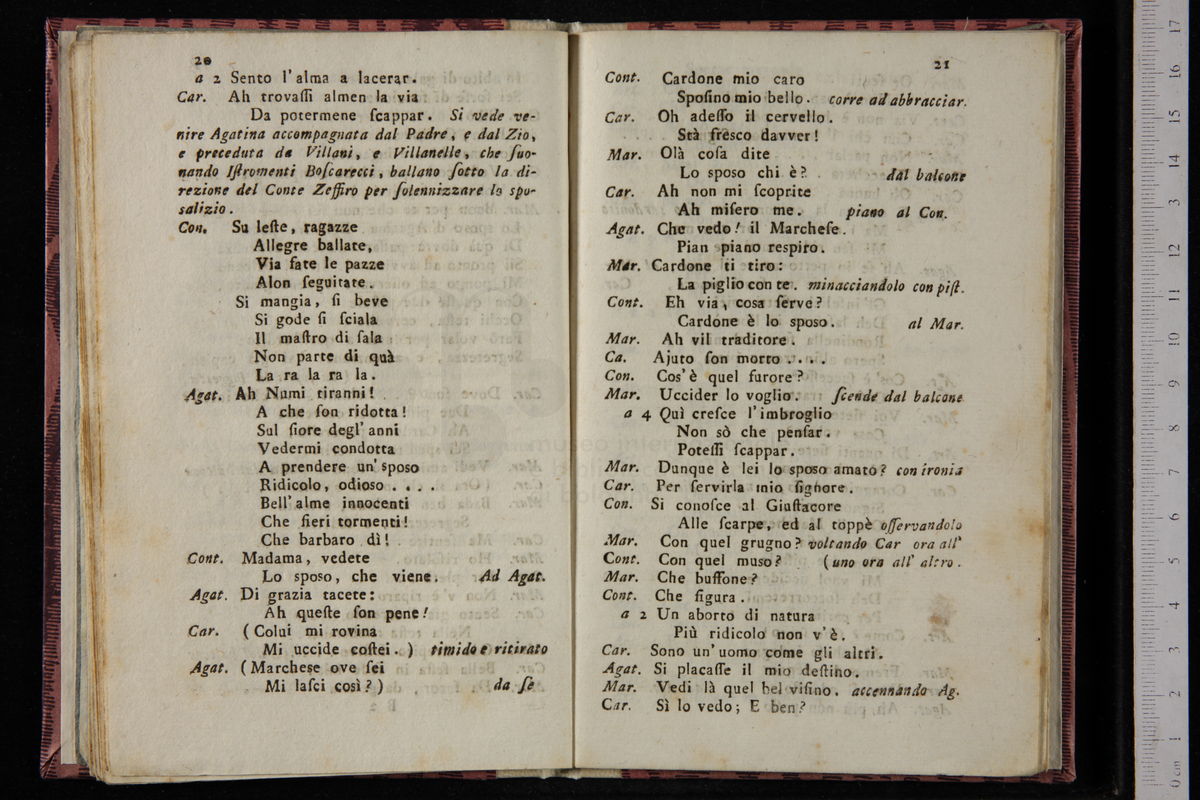 20
a 2 Sento l'alma a lacerar.
Car. Ah trovaſſi almen la via
Da potermene ſcappar. Si vede ve-
nire Agatina accompagnata dal Padre, e dal Zio,
e preceduta da Villani, e Villanelle, che ſuo-
nando Iſtromenti Boſcarecci, ballano ſotto la di-
rezione del Conte Zeffiro per ſolennizzare lo spo-
salizio.
Con. Su leſte, ragazze
Allegre ballate,
Via fate le pazze
Alon ſeguitate.
Si mangia, ſi beve
Si gode ſi ſciala
Il maſtro di ſala
Non parte di quà
La ra la ra la.
Agat. Ah Numi tiranni!
A che ſon ridotta!
Sul fiore degl' anni
Vedermi condotta
A prendere un' sposo
Ridicolo, odioso . . . .
Bell' alme innocenti
Che fieri tormenti!
Che barbaro dì!
Cont. Madama, vedete
Lo sposo, che viene. Ad Agat.
Agat. Di grazia tacete:
Ah queſte ſon pene!
Car. (Colui mi rovina
Mi uccide coſtei.) timido e ritirato
Agat. (Marchese ove ſei
Mi laſci così?) da ſe
21
Cont. Cardone mio caro
Spoſino mio bello. corre ad abbracciar.
Car. Oh adeſſo il cervello.
Stà freſco davver!
Mar. Olà coſa dite
Lo sposo chi è? dal balcone
Car. Ah non mi ſcoprite
Ah miſero me. piano al Con.
Agat. Che vedo! il Marcheſe.
Pian piano respiro.
Mar. Cardone ti tiro:
La piglio con te. minacciandolo con piſt.
Cont. Eh via, cosa ſerve?
Cardone è lo sposo. al Mar.
Mar. Ah vil traditore.
Ca. Ajuto ſon morto . . . .
Con. Cos' è quel furore?
Mar. Uccider lo voglio. ſcende dal balcone
a 4 Quì creſce l'imbroglio
Non sò che penſar.
Poteſſi ſcappar.
Mar. Dunque è lei lo sposo amato? con ironia
Car. Per ſervirla mio ſignore.
Con. Si conoſce al Giuſtacore
Alle ſcarpe, ed al toppè oſſervandolo
Mar. Con quel grugno? voltando Car ora all'
Cont. Con quel muso? (uno ora all' altro.
Mar. Che buffone?
Cont. Che figura.
a 2 Un aborto di natura
Più ridicolo non v'è.
Car. Sono un' uomo come gli altri.
Agat. Si placaſſe il mio deſtino.
Mar. Vedi là quel bel viſino. accennando Ag.
Car. Sì lo vedo; E ben?
0 cm 1 2 3 4 5 6 7 8 9 10 11 12 13 14 15 16 17